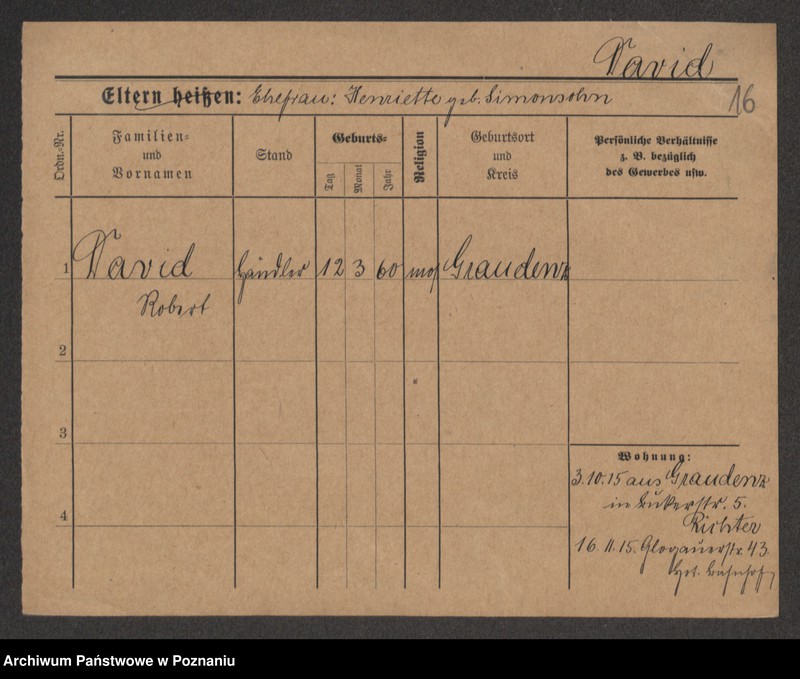 David
Eltern heißen: Ehefrau: Henriette geb. Simonsohn
16
Ordn.-Nr.
Familien-
und
Vornamen
Stand
Geburts-
Tag
Monat
Jahr
Religion
Geburtsort
und
Kreis
Persönliche Verhältnisse
z. B. bezüglich
des Gewerbes usw.
1 David Händler 12 3 60 mos Graudenz
Robert
2
3
4
Wohnung:
3.10.15 aus Graudenz
in 5.
Richter
16.11.15. Glogauerstr. 43.
Hot. Bahnhof
Archiwum Państwowe w Poznaniu